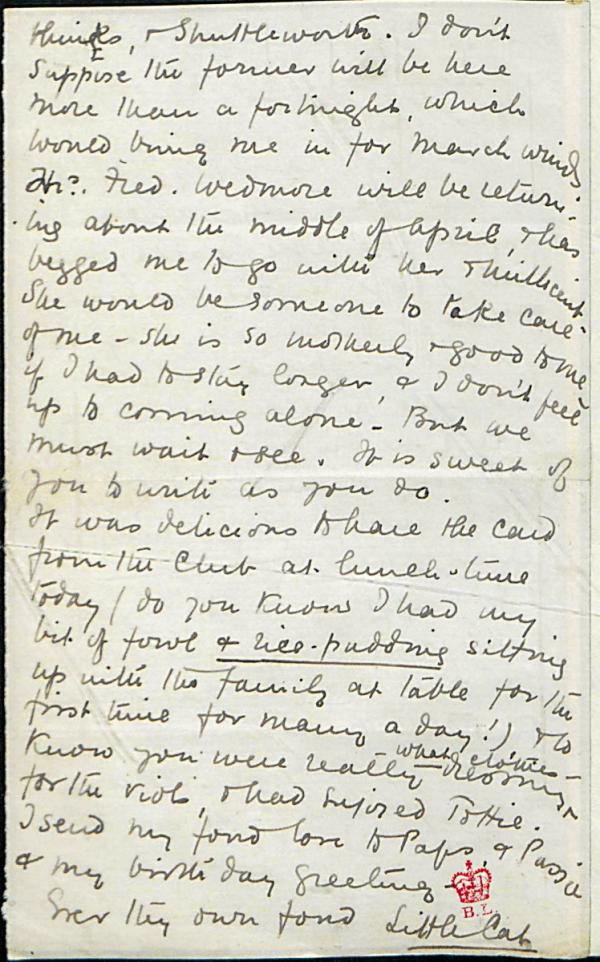 things, & Shuttleworth. I don't
suppose the former will be here
more than a fortnight, which
would bring me in for March winds
Fred. Wedmore will be return-
ing about the middle of April, & has
begged me to go with her & Millicent.
She would be someone to take care
of me - she is so motherly & good to me
if I had to stay longer, & I don't feel
up to coming alone - But we
must wait & see. It is sweet of
you to write as you do.
It was delicious to have the card
from the Club at lunch-time
today (do you know I had my
bit of fowl & rice-pudding sitting
up with the family at table for the
first time for many a day!) & to
know you were really dressing
what clothes -
for the viols, & had enjoyed Tottie.
I send my fond love to Paps & Passie
& my birthday greeting -
Ever thy own fond Little Cat
B.L.